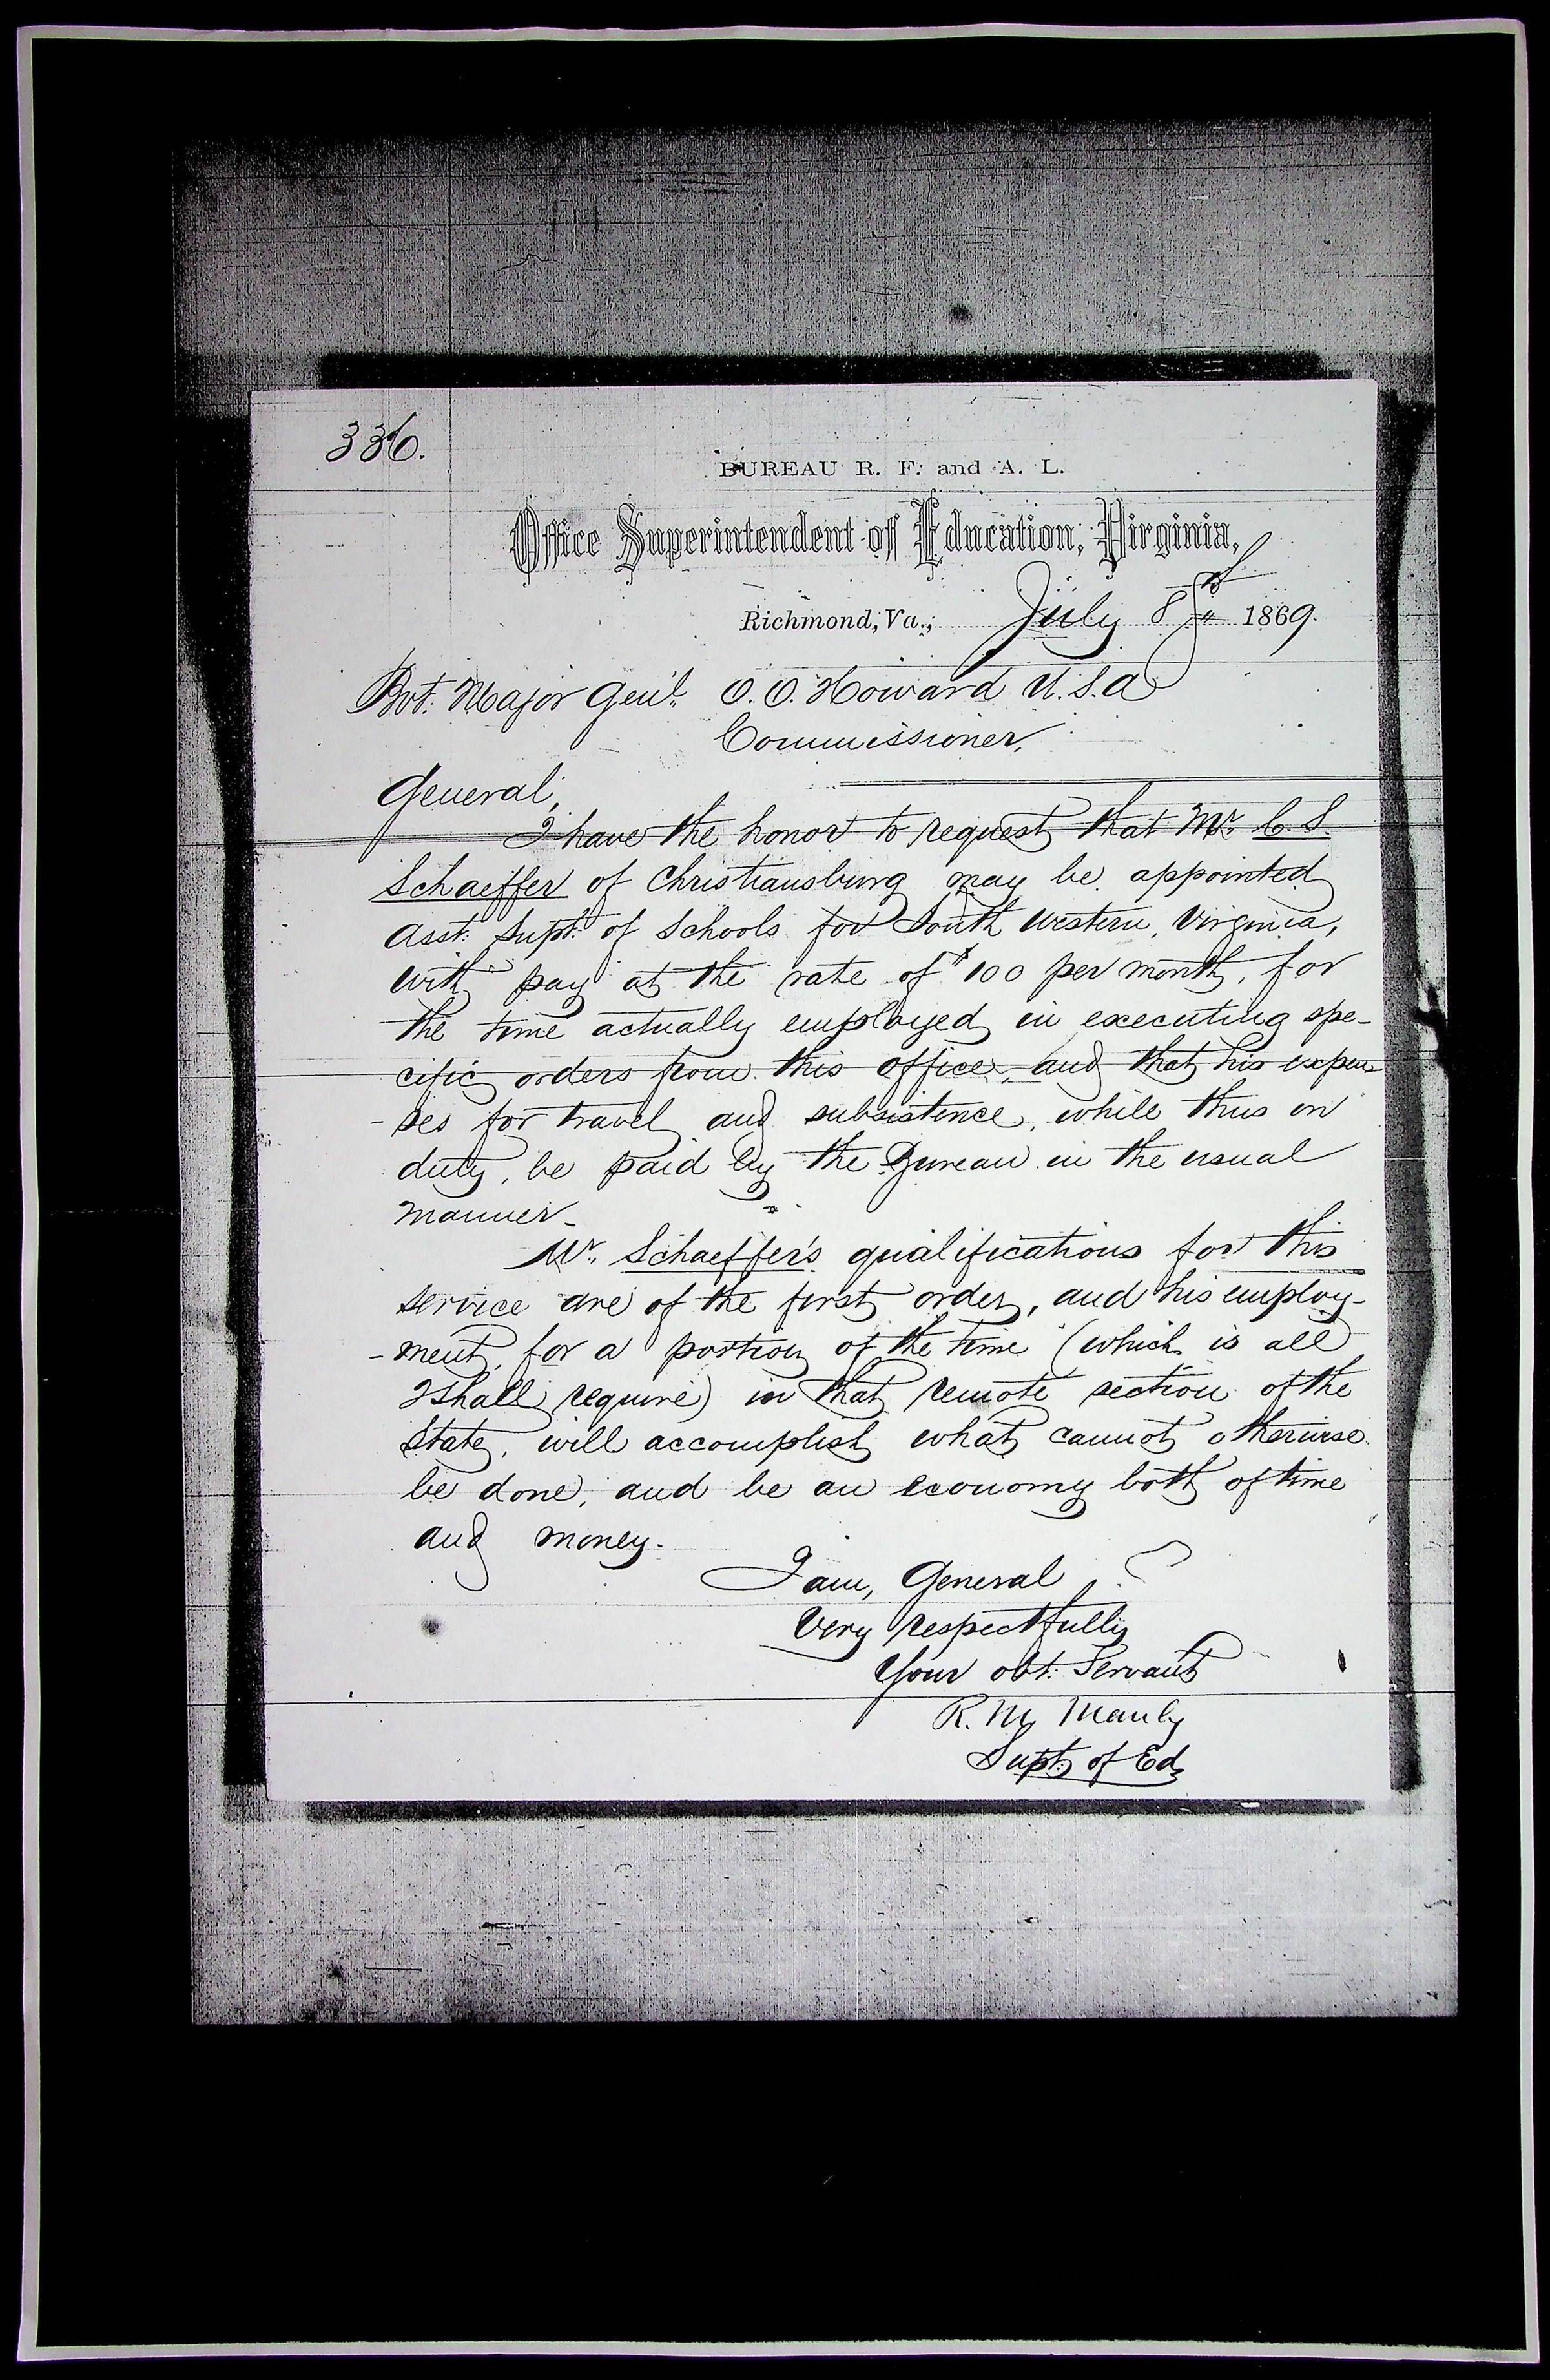 336.
BUREAU R. F. and A. L.
Office Superintendent of Education, Virginia,
Richmond, Va., July 8th 1869.
Bvt. Major Genl. O. O. Howard U.S.A
Commissioner,
General,
I have the honor to request that Mr. C. S.
Schaeffer of Christiansburg may be appointed
Asst. Supt. of Schools for South Western, Virginia,
with pay at the rate of $100 per month, for
the time actually employed in executing spe-
cific orders from this office, and that his expen-
-ses for travel and subsistence, while thus on
duty, be paid by the Bureau in the usual
manner-
Mr. Schaeffer's qualifications for this
service are of the first order, and his employ-
-ment, for a portion of the time (which is all
I shall require) in that remote section of the
State, will accomplish what cannot otherwise
be done, and be an economy both of time
and money.
I am, General
Very respectfully
Your obt. Servant
R. M. Manly
Supt. of Ed.